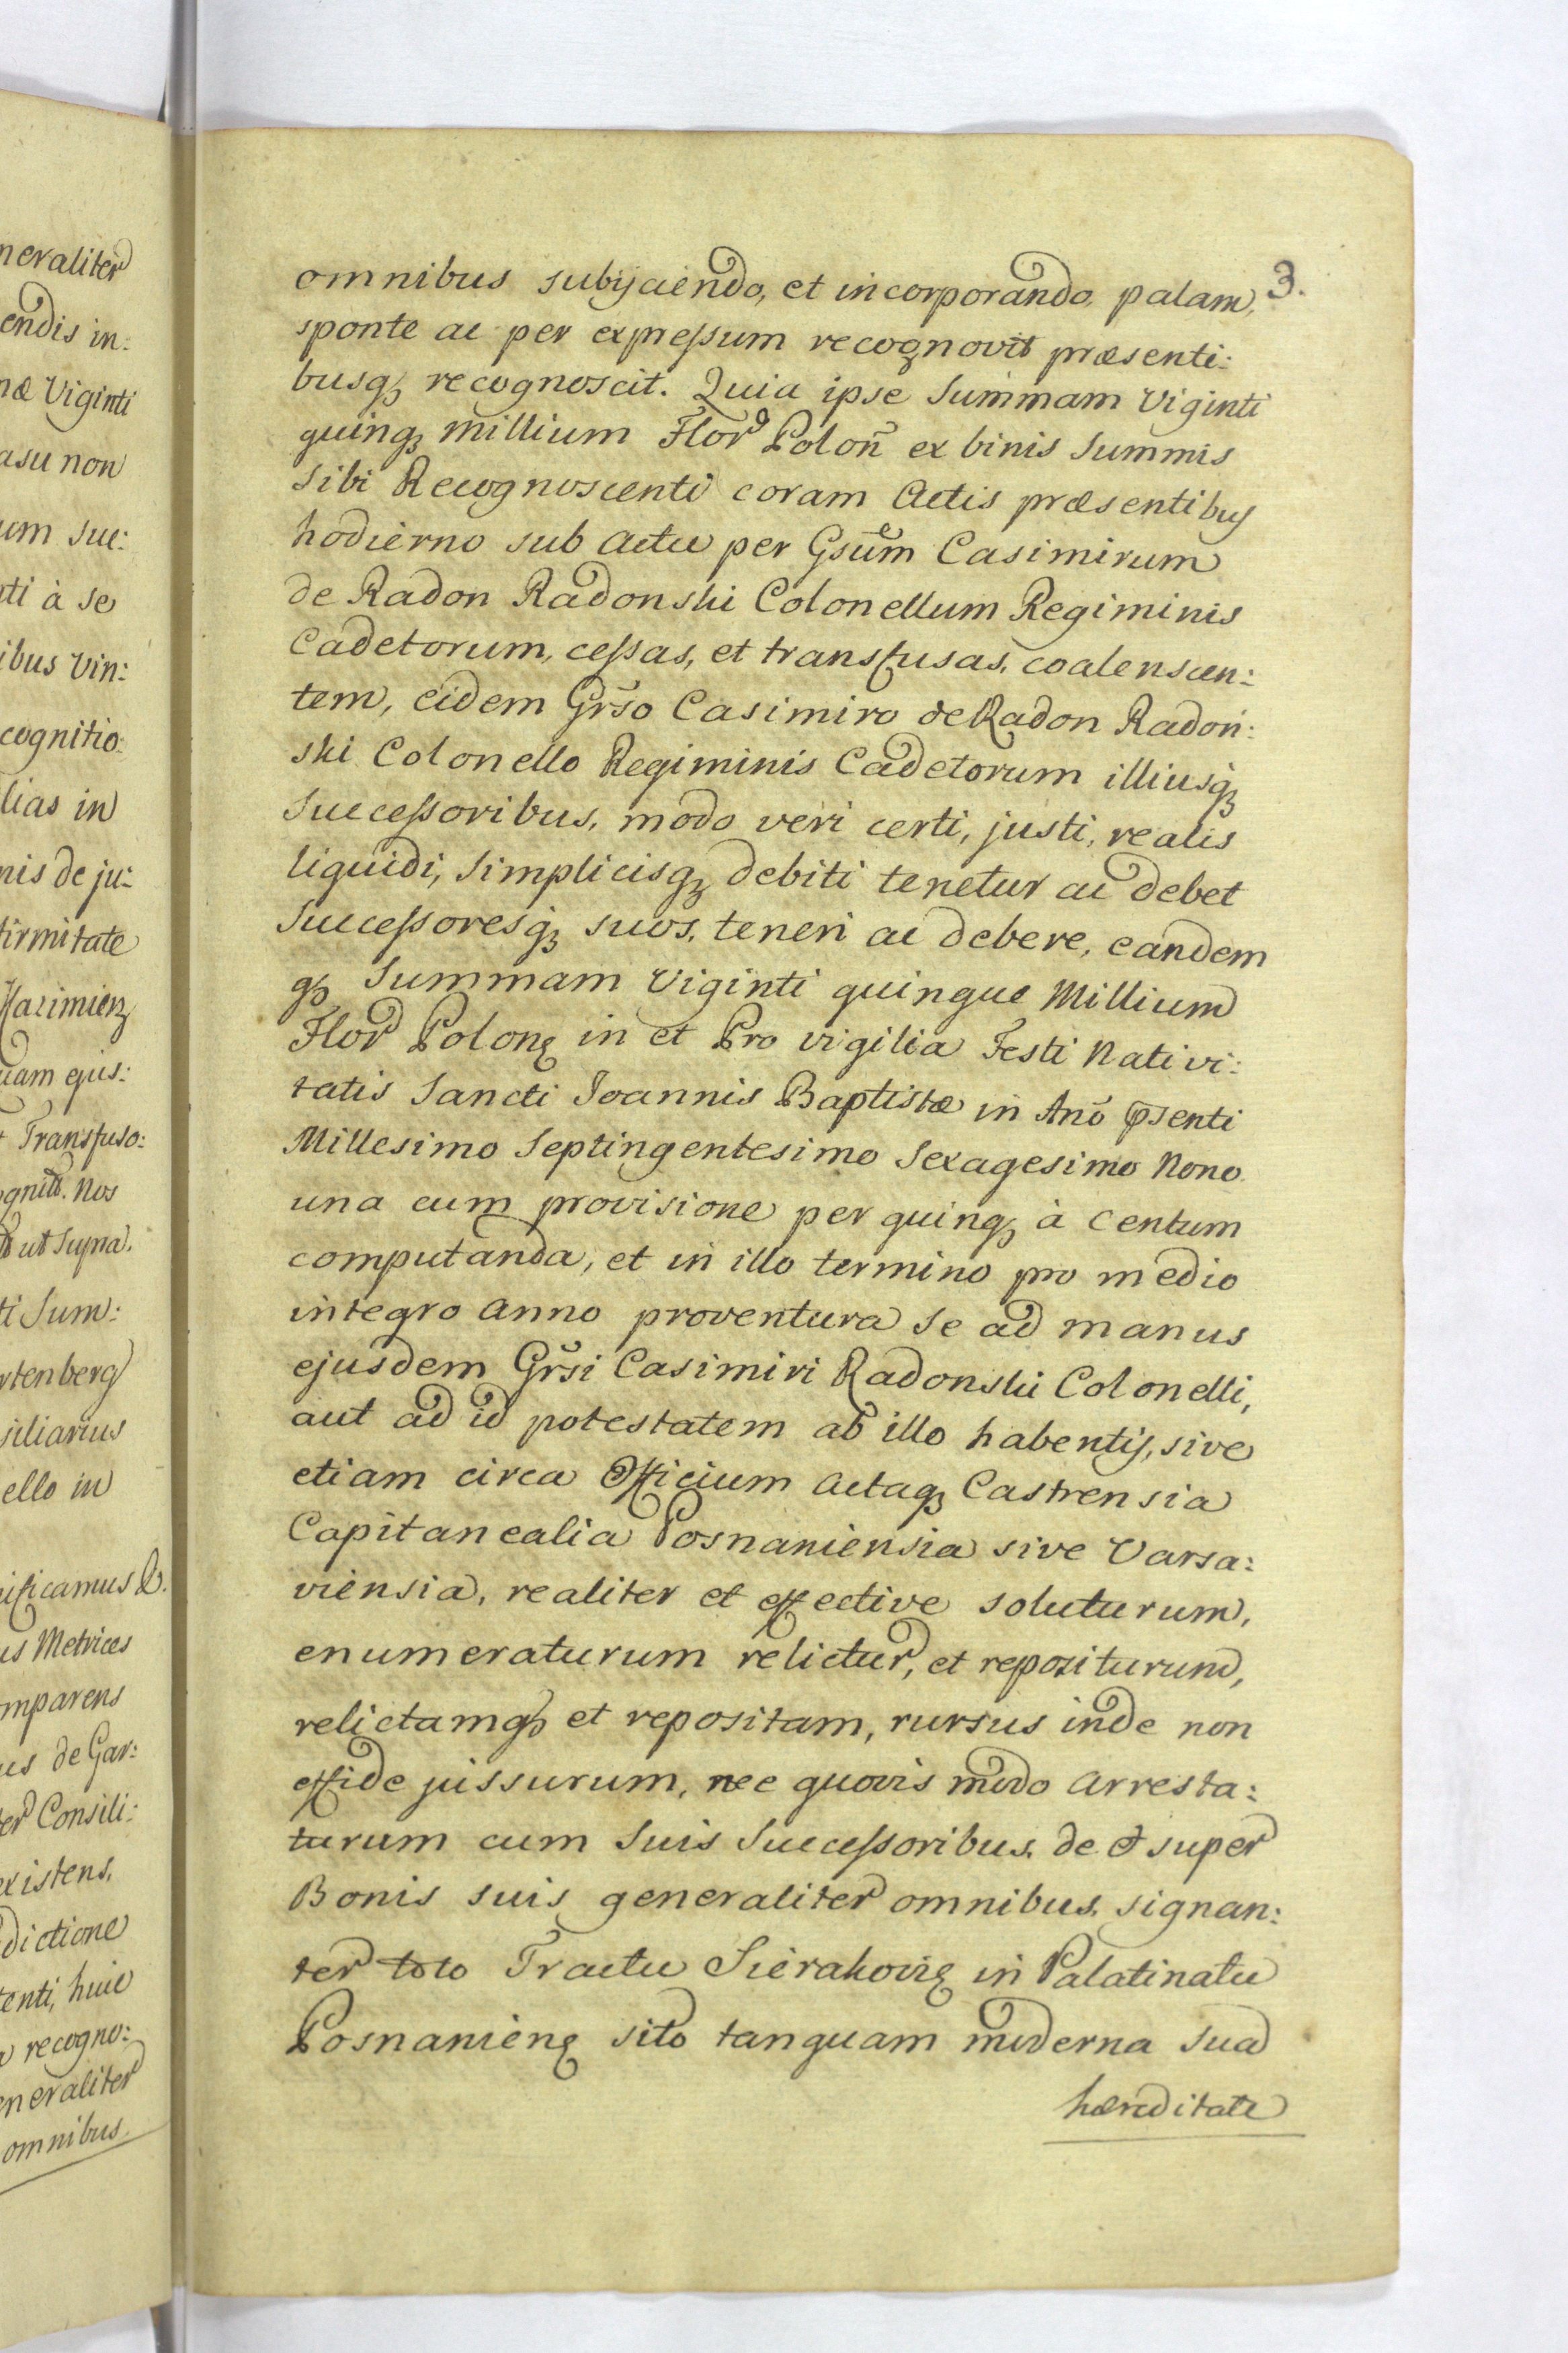 neraliter
endis in:
næ Viginti
asu non
um suc:
nti à se
ibus vin:
cognitio:
lias in
nis de ju:
firmitate
Kazimierz
uam ejus:
Transfuso:
Nos
ut supra.
ti Sum:
rtenberg
siliarius
ello in
nificamus
us Metrices
mparens
us de Gar:
er Consili:
existens,
dictione
tenti, huic
recogno:
eneraliter
omnibus
3.
omnibus subijciendo, et incorporando, palam,
sponte ac per expressum recognovit præsenti:
busq; recognoscit. Quia ipse Summam Viginti
quinq; millium Flor Polon̄ ex binis Summis
Sibi Recognoscenti coram Actis præsentibus
hodierno sub actu per Gsūm Casimirum
de Radon Radonski Colonellum Regiminis
Cadetorum, cessas, et transfusas, coalenscen:
tem, eidem Gr̄so Casimiro de Radon Radoń:
ski Colonello Regiminis Cadetorum illiusq;
Successoribus, modo veri certi, justi, realis
liquidi, Simplicisq; debiti tenetur ac debet
Successoresq; suos, teneri ac debere, eandem
q; Summam Viginti quinque Millium
Flor Polonę in et Pro vigilia Festi Nativi:
tatis Sancti Joannis Baptistæ in Anō p̄senti
Millesimo Septingentesimo Sexagesimo Nono
una cum provisione per quinq; à Centum
computanda, et in illo termino pro medio
integro anno proventura Se ad manus
ejusdem Gr̄si Casimiri Radonski Colonelli,
aut ad id potestatem ab illo habentis, sive
etiam circa Officium Actaq; Castrensia
Capitanealia Posnaniensia sive Varsa:
viensia, realiter et effective soluturum,
enumeraturum relictur, et repositurum,
relictamq; et repositam, rursus inde non
effide jussurum, nec quovis modo Arresta:
turum cum Suis Successoribus, de et super
Bonis suis generaliter omnibus, signan:
ter toto Tractu Sierakovię in Palatinatu
Posnanienę sito tanquam moderna sua
hæreditate